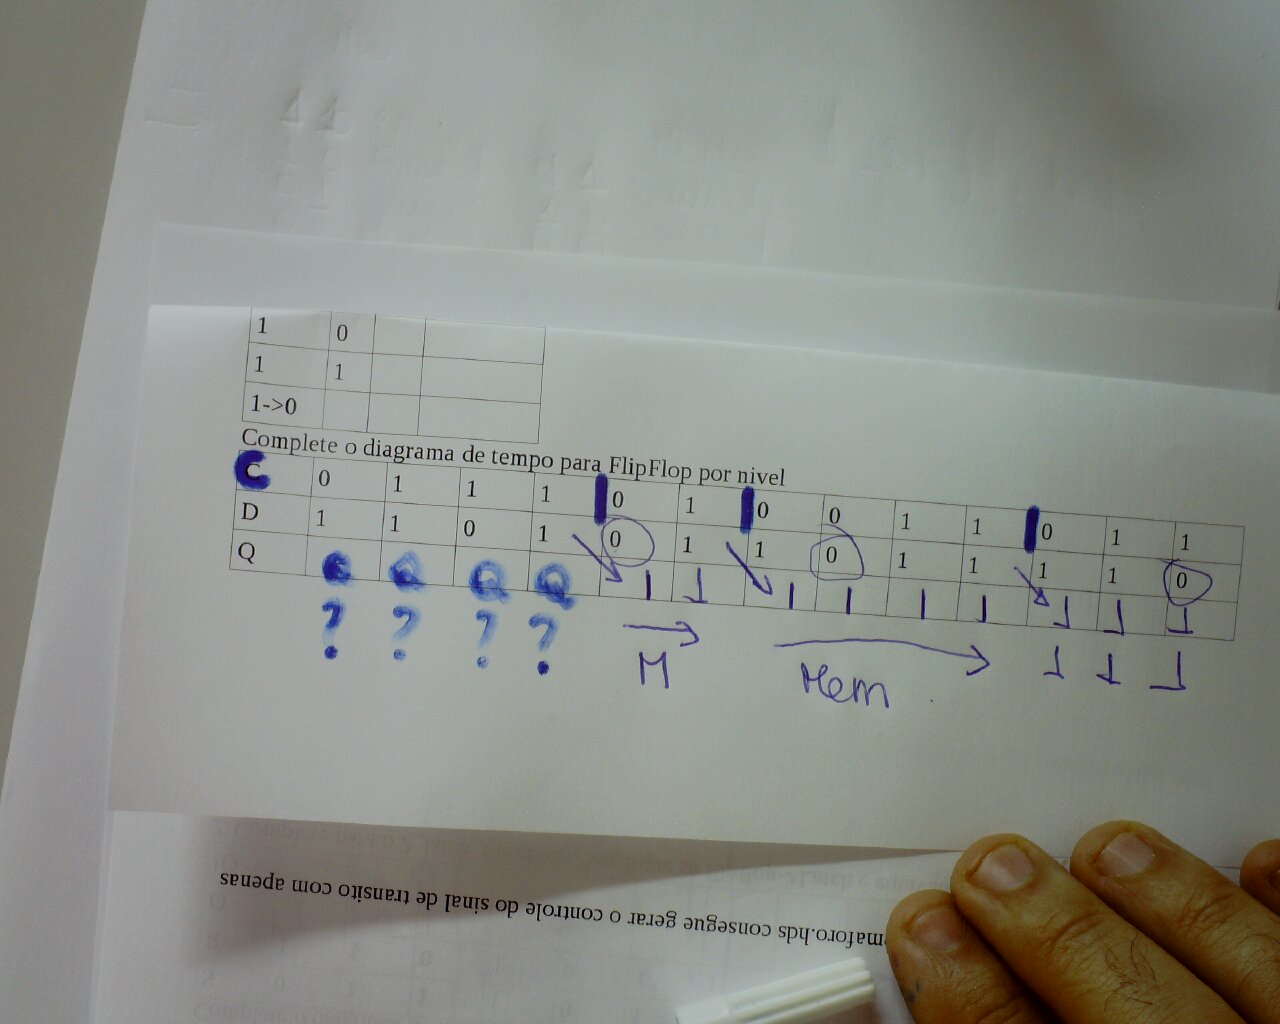 1 0
1 1
1->0
Complete o diagrama de tempo para FlipFlop por nivel
C 0 1 1 1 0 1 0 0 1 1 0 1 1
D 1 1 0 1 0 1 1 0 1 1 1 1 0
Q Q Q Q Q 1 1 1 1 1 1 1 1 1
? ? ? ? M Mem 1 1 1
consegue gerar o controle do sinal de transito com apenas